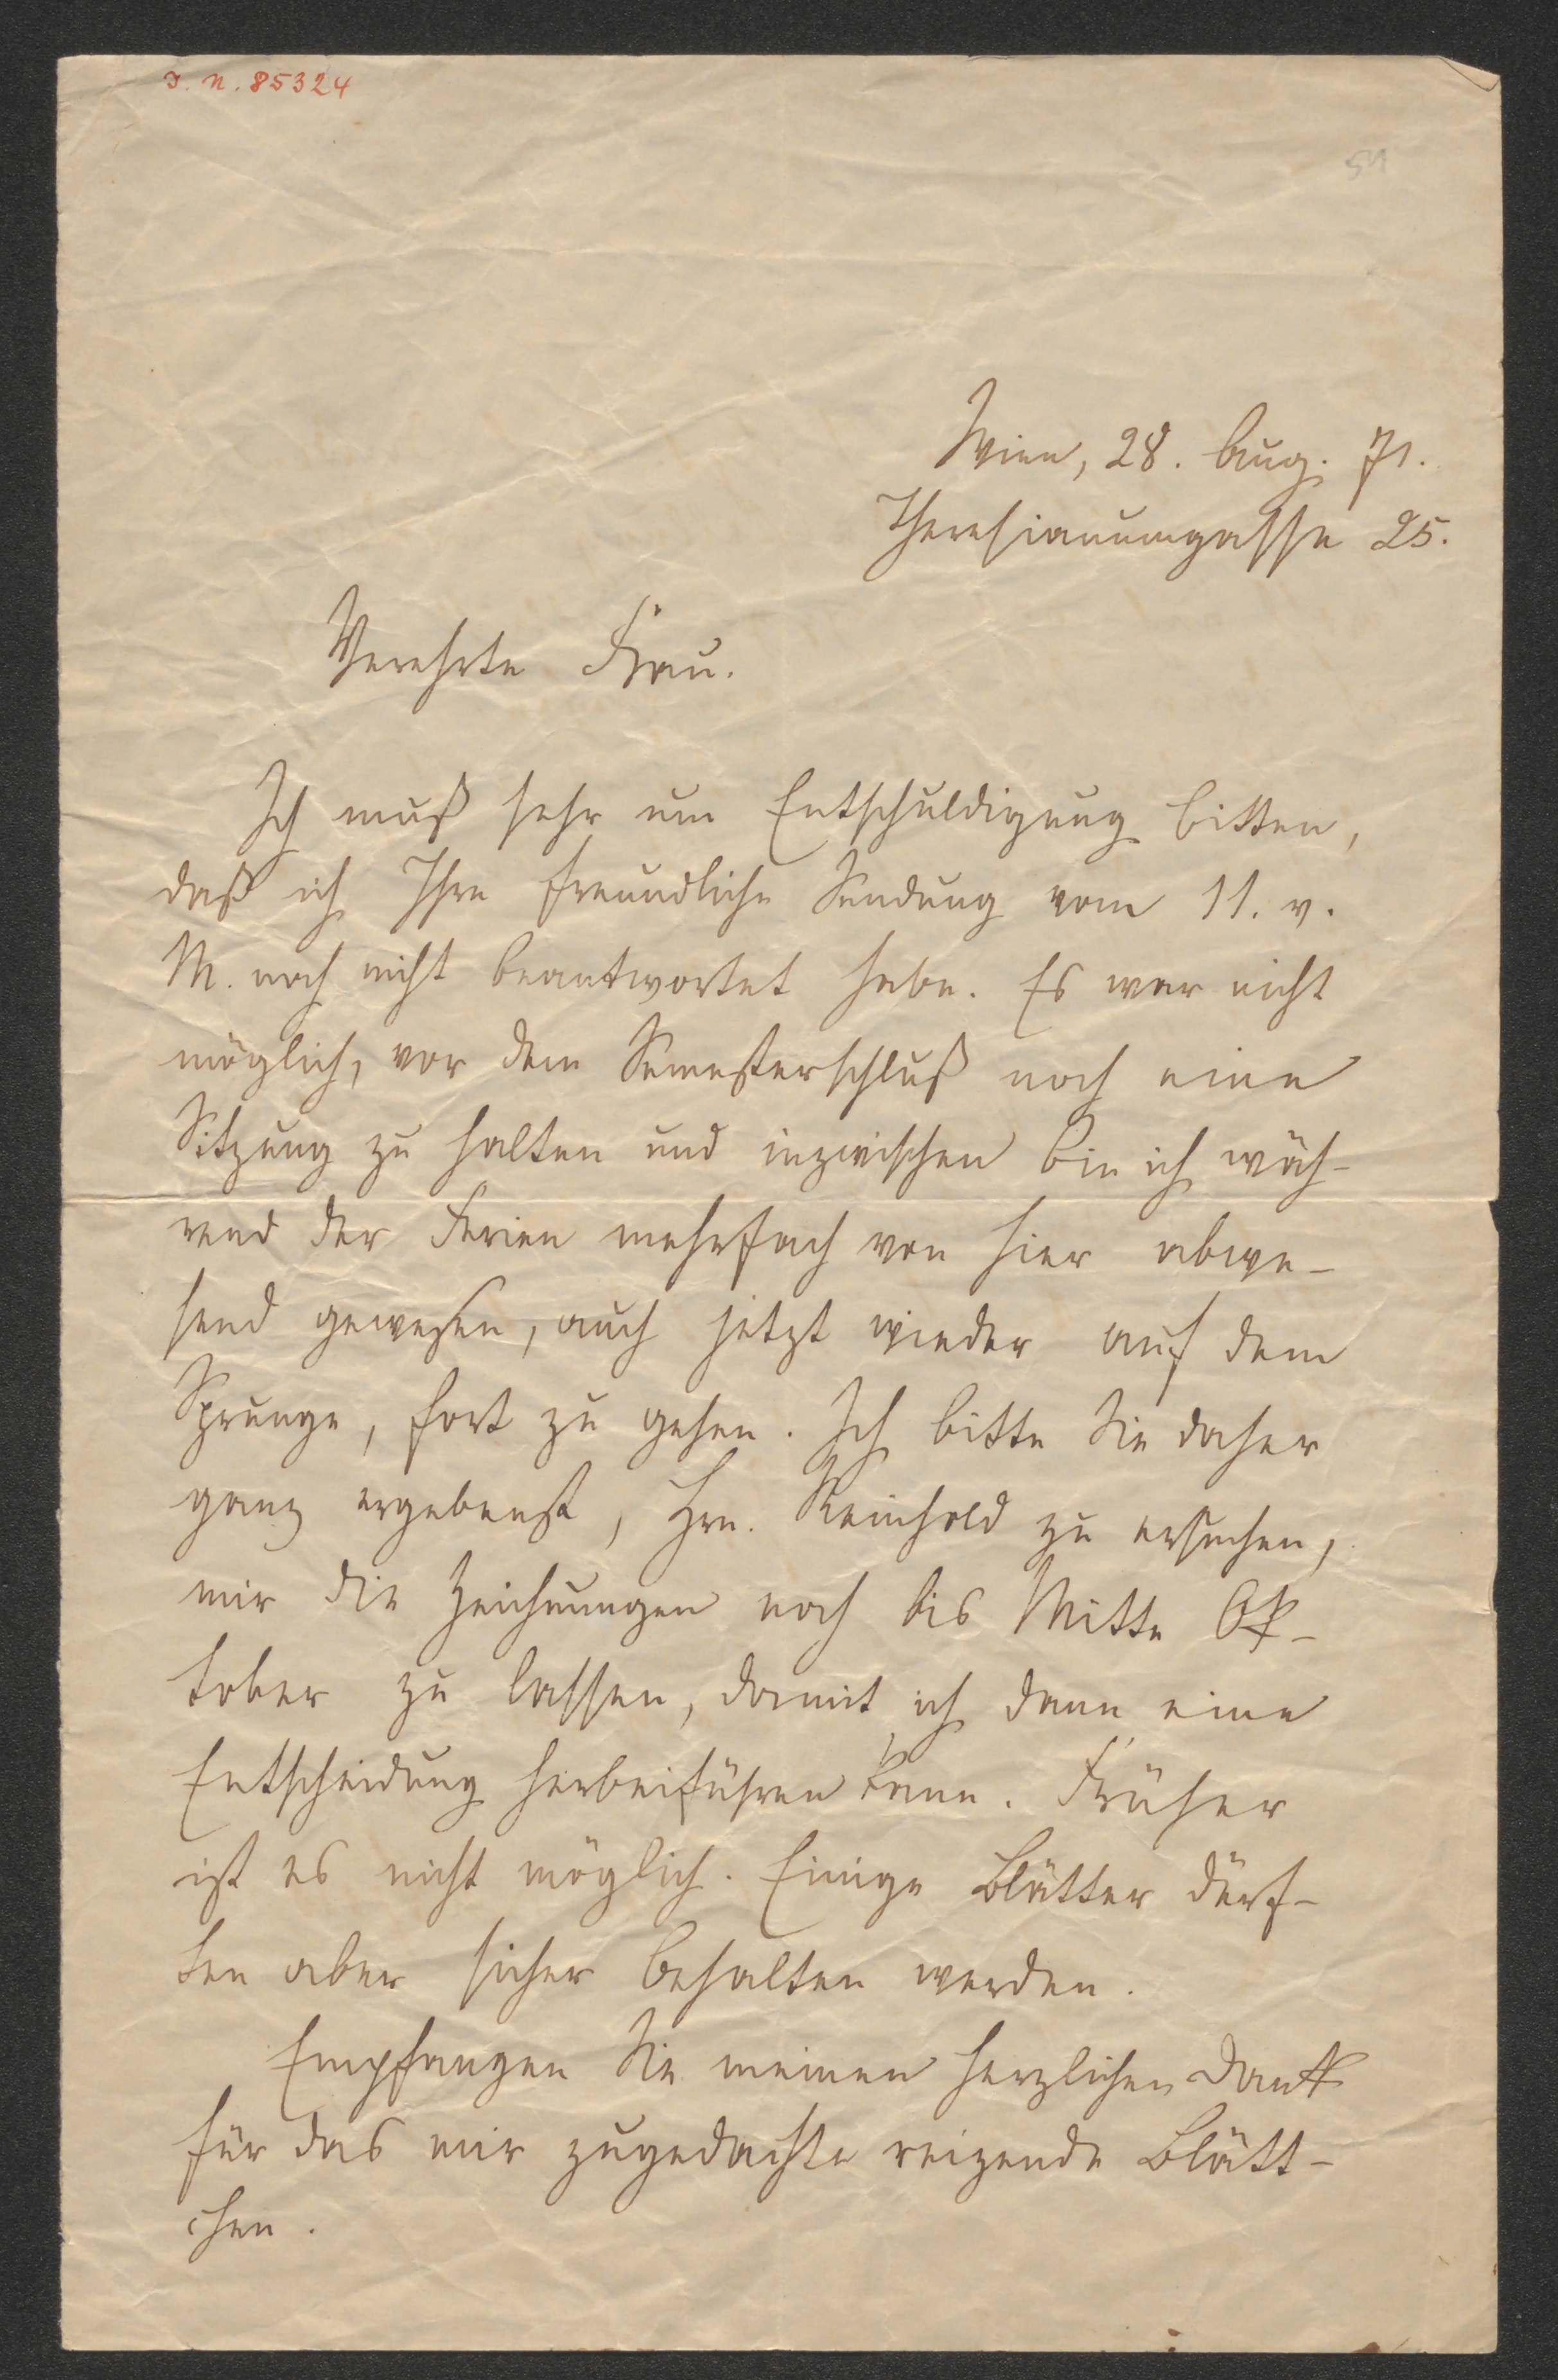 I. N. 85324
51
Wien, 28. Aug. 71.
Theresianumgasse 25.
Verehrte Frau.
Ich muß sehr um Entschuldigung bitten,
daß ich Ihre freundliche Sendung vom 11. v.
M. noch nicht beantwortet habe. Es war nicht
möglich, vor dem Semesterschluß noch eine
Sitzung zu halten und inzwischen bin ich wäh-
rend der Ferien mehrfach von hier abwe-
send gewesen, auch jetzt wieder auf dem
Sprunge, fort zu gehen. Ich bitte Sie daher
ganz ergebenst, Hrn. Reinhold zu ersuchen,
mir die Zeichnungen noch bis Mitte Ok-
tober zu lassen, damit ich dann eine
Entscheidung herbeiführen kann. Früher
ist es nicht möglich. Einige Blätter dürf-
ten aber sicher behalten werden.
Empfangen Sie meinen herzlichen Dank
für das mir zugedachte reizende Blätt-
chen.